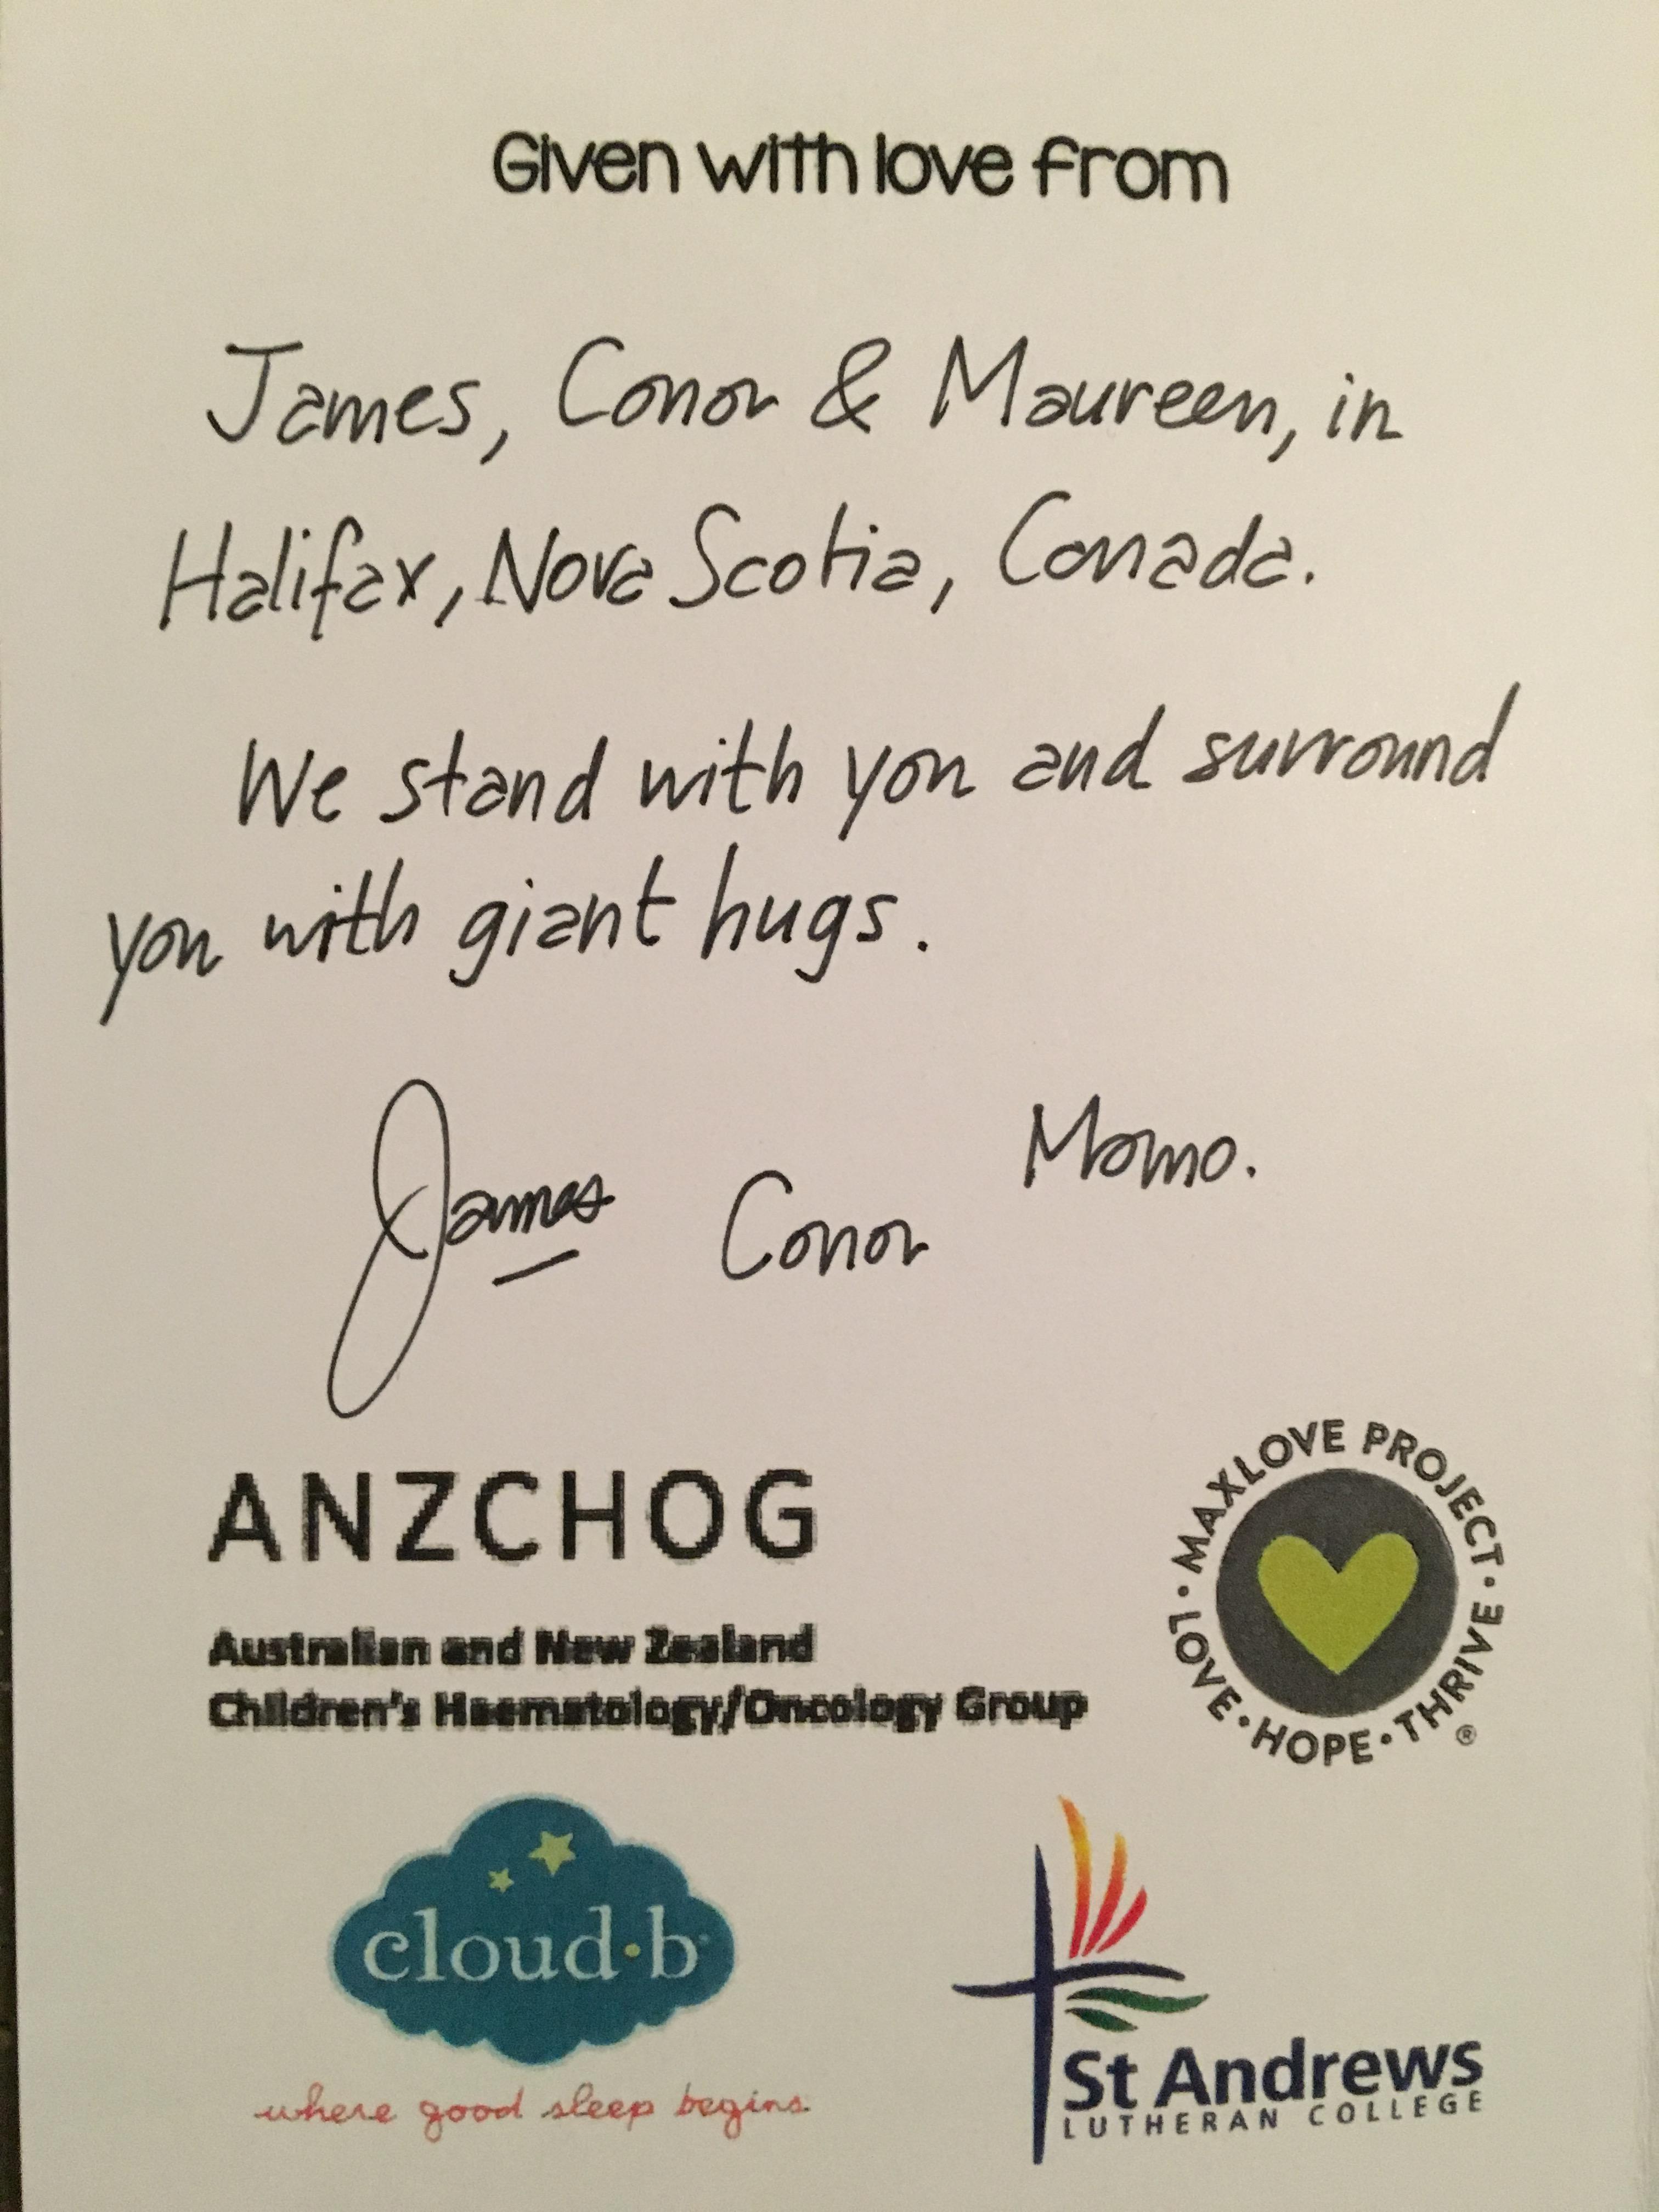 Given with love from
James, Conor & Maureen, in
Halifax, Nova Scotia, Canada.
We stand with you and surround
you with giant hugs.
James Conor Momo.
ANZCHOG
Australian and New Zealand
Children's Haematology/Oncology Group
• MAXLOVE PROJECT •
LOVE • HOPE • THRIVE
®
cloud·b
where good sleep begins
St Andrews
LUTHERAN COLLEGE